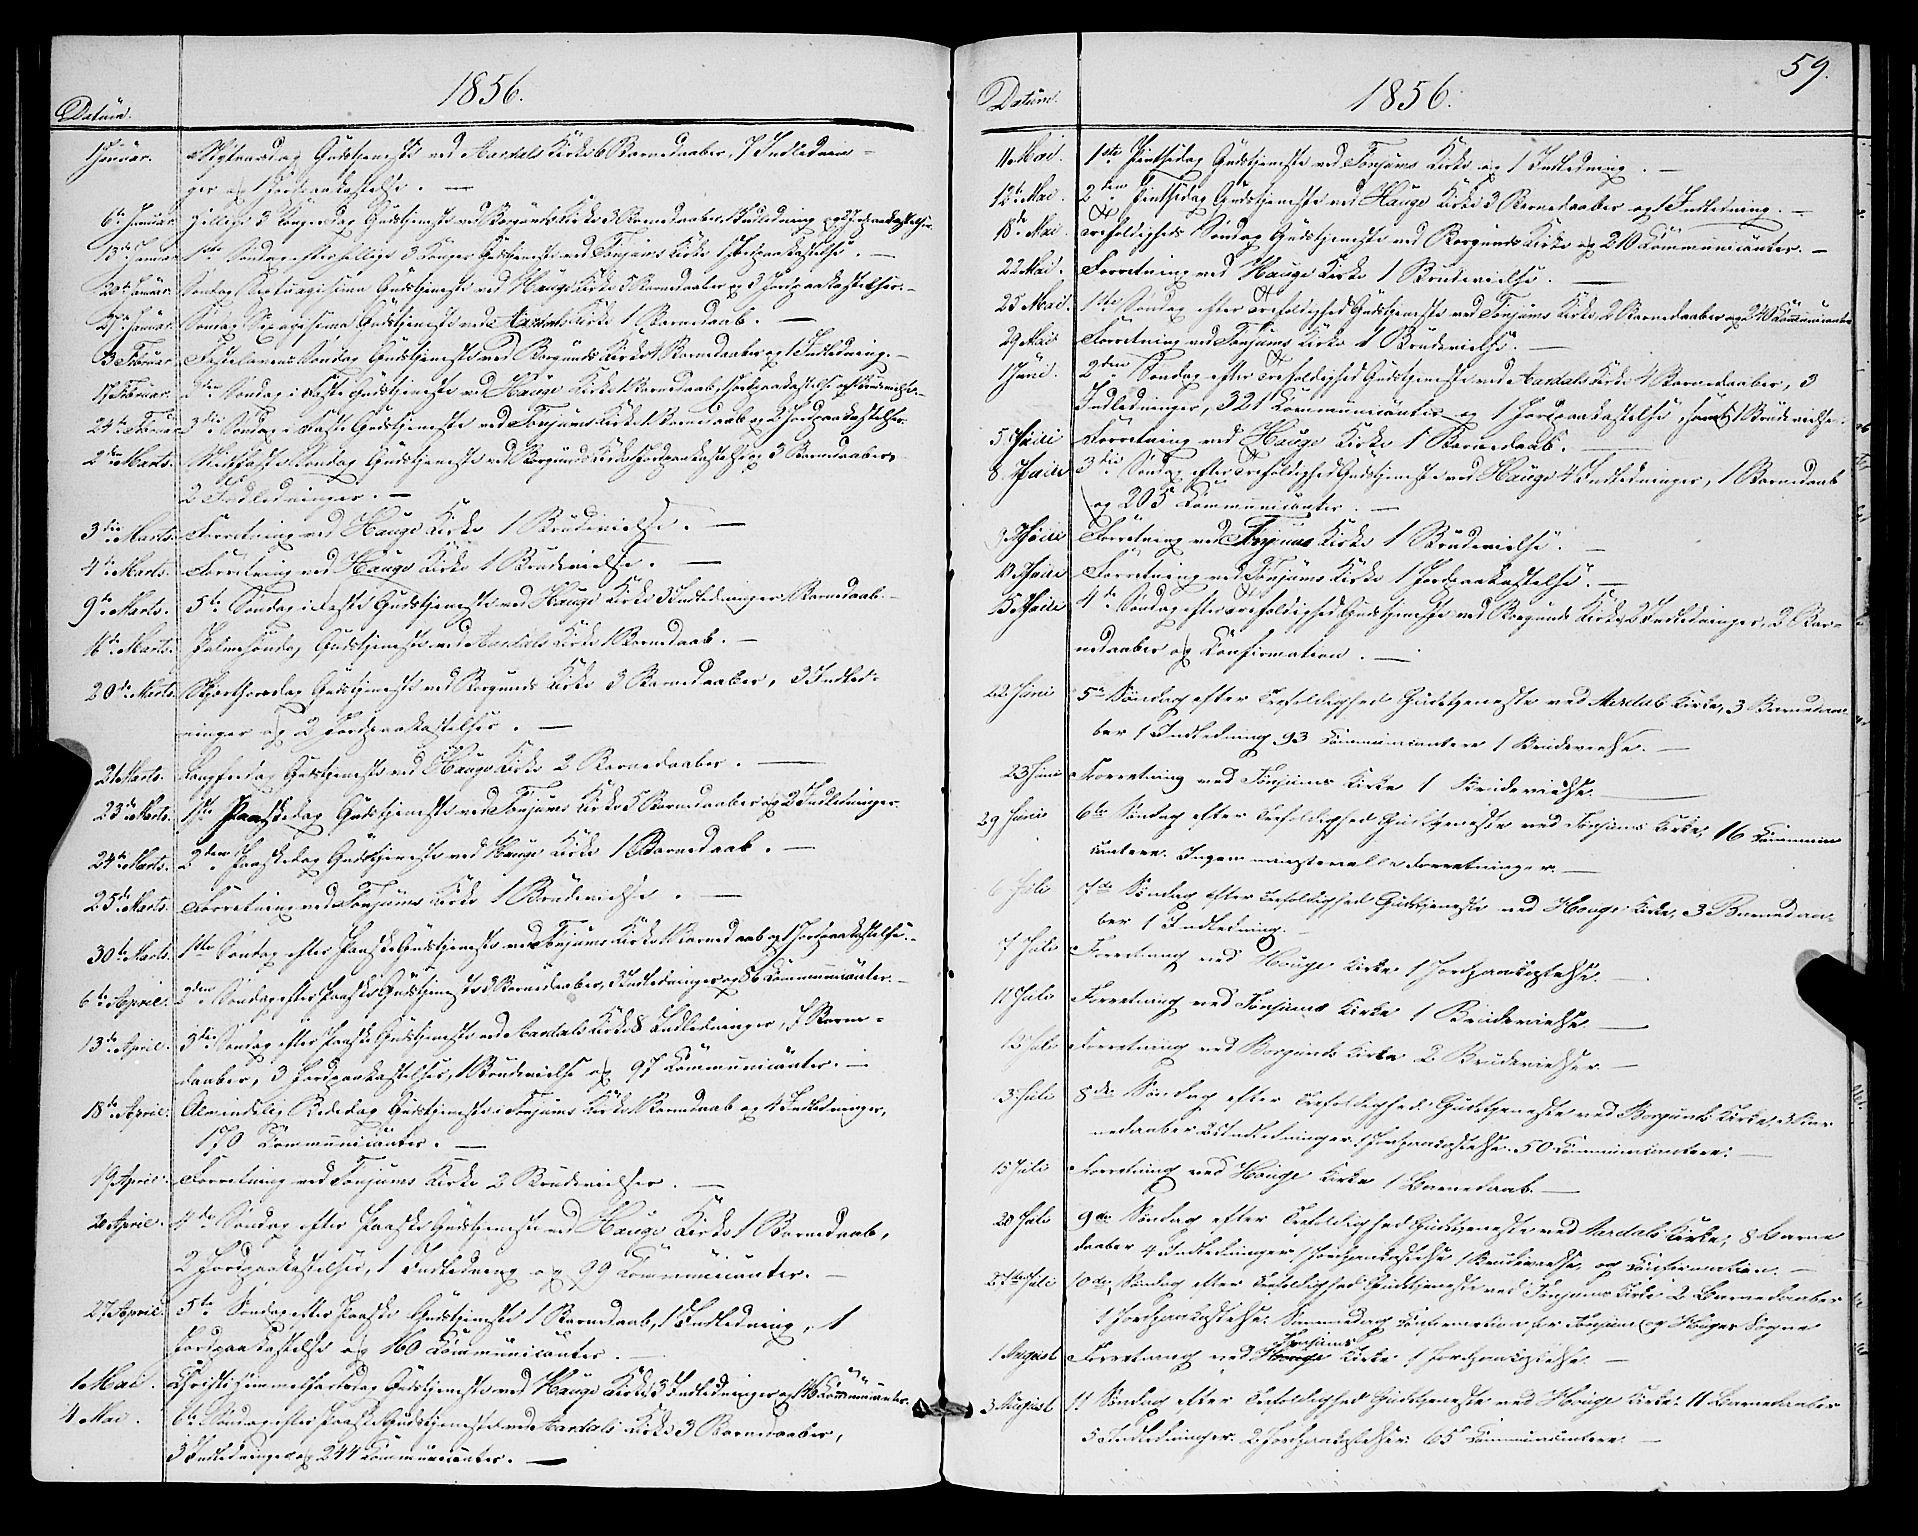 1856.
Datum.
1 Januar. Nytaarsdag Gudstjeneste ved Aardals Kirke 6 Barnedaaber, 7 Indlednin-
ger og 1 Jordpaakastelse. —
6te Januar. Hellige 3 Kongersdag Gudstjeneste ved Borgunds Kirke 3 Barnedaaber, Indledning og Jordpaakastelser.
13de Januar 1ste Søndag efter hellige 3 Konger Gudstjeneste ved Tønjums Kirke 1 Jordpaakastelse. —
20de Januar. Søndag Septuagesima Gudstjeneste ved Hauge Kirke 5 Barnedaaber og 3 Jordpaakastelser. —
27de Januar. Søndag Sexagesima Gudstjeneste ved Aardals Kirke 1 Barnedaab. —
3 Februar Fastelavns Søndag Gudstjeneste ved Borgunds Kirke 4 Barnedaaber og 1 Indledning. —
17 Februar. 2den Søndag i Faste Gudstjeneste ved Hauge Kirke 1 Barnedaab, 1 Jordpaakastelse og Brudevielse
24de Februar 3die Søndag i Faste Gudstjeneste ved Tønjums Kirke 1 Barnedaab og 2 Jordpaakastelser
2den Marts. Midfaste Søndag Gudstjeneste ved Borgunds Kirke Jordpaakastelse og 3 Barnedaaber,
2 Indledninger. —
3die Marts. Forretning ved Hauge Kirke 1 Brudevielse. —
4de Marts. Forretning ved Hauge Kirke 1 Brudevielse. —
9de Marts. 5te Søndag i Faste Gudstjeneste ved Hauge Kirke 3 Indledninger Barnedaab. —
16de Marts. Palmesøndag Gudstjeneste ved Aardals Kirke 1 Barnedaab. —
20de Marts. Skjærthorsdag Gudstjeneste ved Borgunds Kirke 3 Barnedaaber, 3 Indled-
ninger og 2 Jordpaakastelser. —
21 Marts. Langfredag Gudstjeneste ved Hauge Kirke 2 Barnedaaber. —
23de Marts. 1ste Paaskedag Gudstjeneste ved Tønjums Kirke 5 Barnedaaber og 2 Indledninger.
24de Marts. 2den Paaskedag Gudstjeneste ved Hauge Kirke 1 Barnedaab. —
25de Marts. Forretning ved Tønjums Kirke 1 Brudevielse. —
30te Marts. 1ste Søndag efter Paaske Gudstjeneste ved Tønjums Kirke 1 Barnedaab og 1 Jordpaakastelse. —
6te April. 2den Søndag efter Paaske Gudstjeneste 3 Barnedaaber, 3 Indledninger og 56 Communicanter. —
13de April. 3die Søndag efter Paaske Gudstjeneste ved Aardals Kirke 8 Indledninger, 7 Barne-
daaber, 3 Jordpaakastelser, 1 Brudevielse og 97 Communicanter. —
18de April. Almindelig Bededag Gudstjeneste i Tønjums Kirke 1 Barnedaab og 4 Indledninger,
170 Communicanter. —
19 April. Forretning ved Tønjums Kirke 2 Brudevielser. —
20 April. 4de Søndag efter Paaske Gudstjeneste ved Hauge Kirke 1 Barnedaab,
2 Jordpaakastelser, 1 Indledning og 99 Communicanter. —
27 April. 5te Søndag efter Paaske Gudstjeneste 1 Barnedaab, 1 Indledning, 1
Jordpaakastelse og 160 Communicanter. —
1 Mai. Christi Himmelfartsdag Gudstjeneste ved Hauge Kirke 3 Indledninger og Communicanter.
4 Mai. 6te Søndag efter Paaske Gudstjeneste ved Aardals Kirke 3 Barnedaaber,
3 Indledninger og 244 Communicanter. —
59.
1856.
Datum.
11 Mai. 1ste Pintsedag Gudstjeneste ved Tønjums Kirke og 1 Indledning. —
12te Mai. 2den Pintsedag Gudstjeneste ved Hauge Kirke 3 Barnedaaber og 1 Indledning. —
18de Mai. Trefoldigheds Søndag Gudstjeneste ved Borgunds Kirke og 210 Communicanter. —
22 Mai. Forretning ved Hauge Kirke 1 Brudevielse. —
25 Mai. 1ste Søndag efter Trefoldighed Gudstjeneste ved Tønjums Kirke, 2 Barnedaaber og 240 Communicanter
29 Mai Forretning ved Tønjums Kirke 1 Brudevielse. —
1 Juni. 2den Søndag efter Trefoldighed Gudstjeneste ved Aardals Kirke 4 Barnedaaber, 3
Indledninger, 321 Communicanter og 1 Jordpaakastelse samt 1 Brudevielse.
5 Juni Forretning ved Hauge Kirke 1 Barnedaab. —
8 Juni 3die Søndag efter Trefoldighed Gudstjeneste ved Hauge 4 Indledninger, 1 Barnedaab
og 205 Communicanter. —
9 Juni Forretning ved Tønjums Kirke 1 Brudevielse. —
Juni Forretning ved Tønjums Kirke 1 Jordpaakastelse. —
15 Juni 4de Søndag efter Trefoldighed Gudstjeneste ved Borgunds Kirke, 2 Indledninger, 2 Bar-
nedaaber og Confirmation. —
22 Juni 5te Søndag efter Trefoldighed Gudstjeneste ved Aardals Kirke, 3 Barnedaa-
ber 1 Indledning 93 Communicantere 1 Brudevielse. —
23 Juni Forretning ved Tønjums Kirke 1 Brudevielse. —
29 Juni 6te Søndag efter Trefoldighed Gudstjeneste ved Tønjums Kirke, 16 Communi
cantere. Ingen ministerielle Forretninger. —
6 Juli 7de Søndag efter Trefoldighed Gudstjeneste ved Houge Kirke, 3 Barnedaa-
ber 1 Indledning. —
7 Juli Forretning ved Houge Kirke 1 Jordpaakastelse. —
11 Juli Forretning ved Tønjums Kirke 1 Brudevielse —
12 Juli Forretning ved Borgunds Kirke 2 Brudevielser —
13 Juli 8de Søndag efter Trefoldighed Gudstjeneste ved Borgunds Kirke, 3 Bar
nedaaber Indledninger 1 Jordpaakastelse. 50 Communicantere. —
15 Juli Forretning ved Houge Kirke 1 Barnedaab. —
20 Juli 9de Søndag efter Trefoldighed Gudstjeneste ved Aardals Kirke, 8 Barne
daaber 4 Indledninger 1 Jordpaakastelse 1 Brudevielse og Confirmation. —
27de Juli 10de Søndag efter Trefoldighed Gudstjeneste ved Tønjums Kirke 2 Barnedaaber
1 Jordpaakastelse. Sammedag Confirmation for Tønjum og Houges Sogne
1 August Forretning ved Houge Tønjums Kirke 1 Jordpaakastelse. —
3 August 11 Søndag efter Trefoldighed Gudstjeneste ved Houge Kirke. 11 Barnedaaber
5 Indledninger 2 Jordpaakastelser 65 Communicantere. —